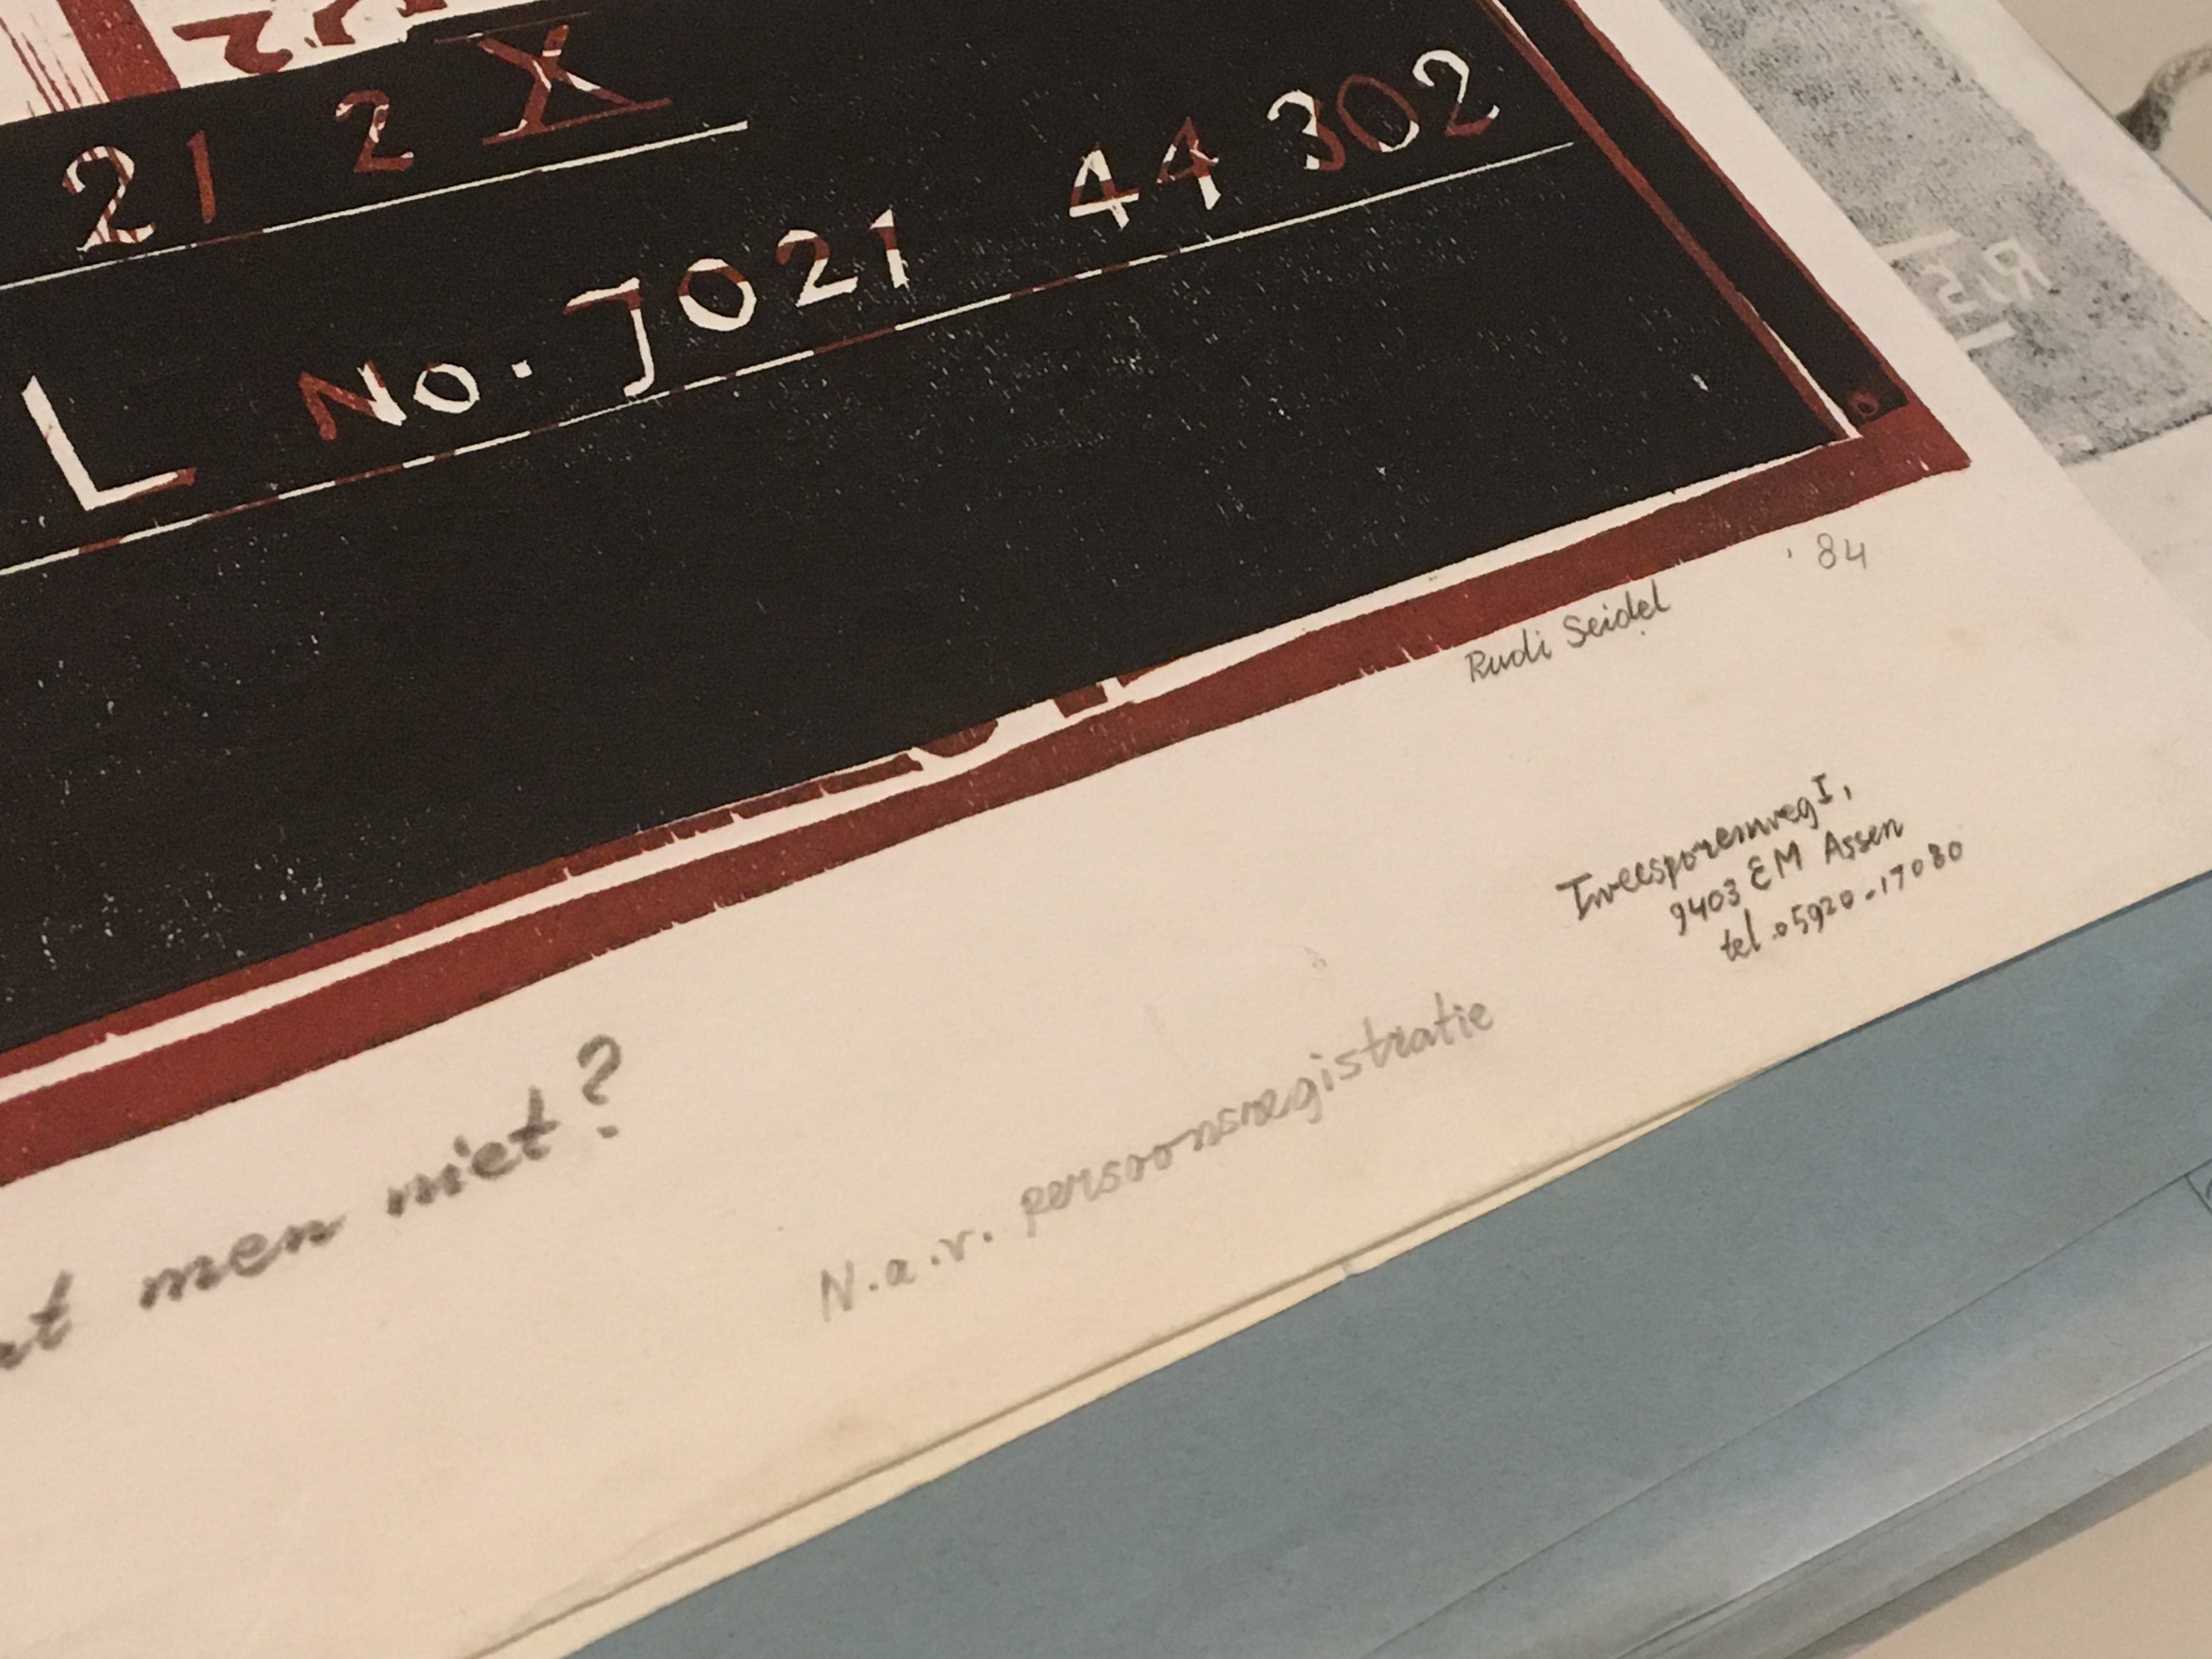 21 2 X
L No. J021 44302
Rudi Seidel '84
Tweesporenweg I,
9403 EM Assen
tel. 05920-17080
men niet?
N.a.v. persoonsregistratie